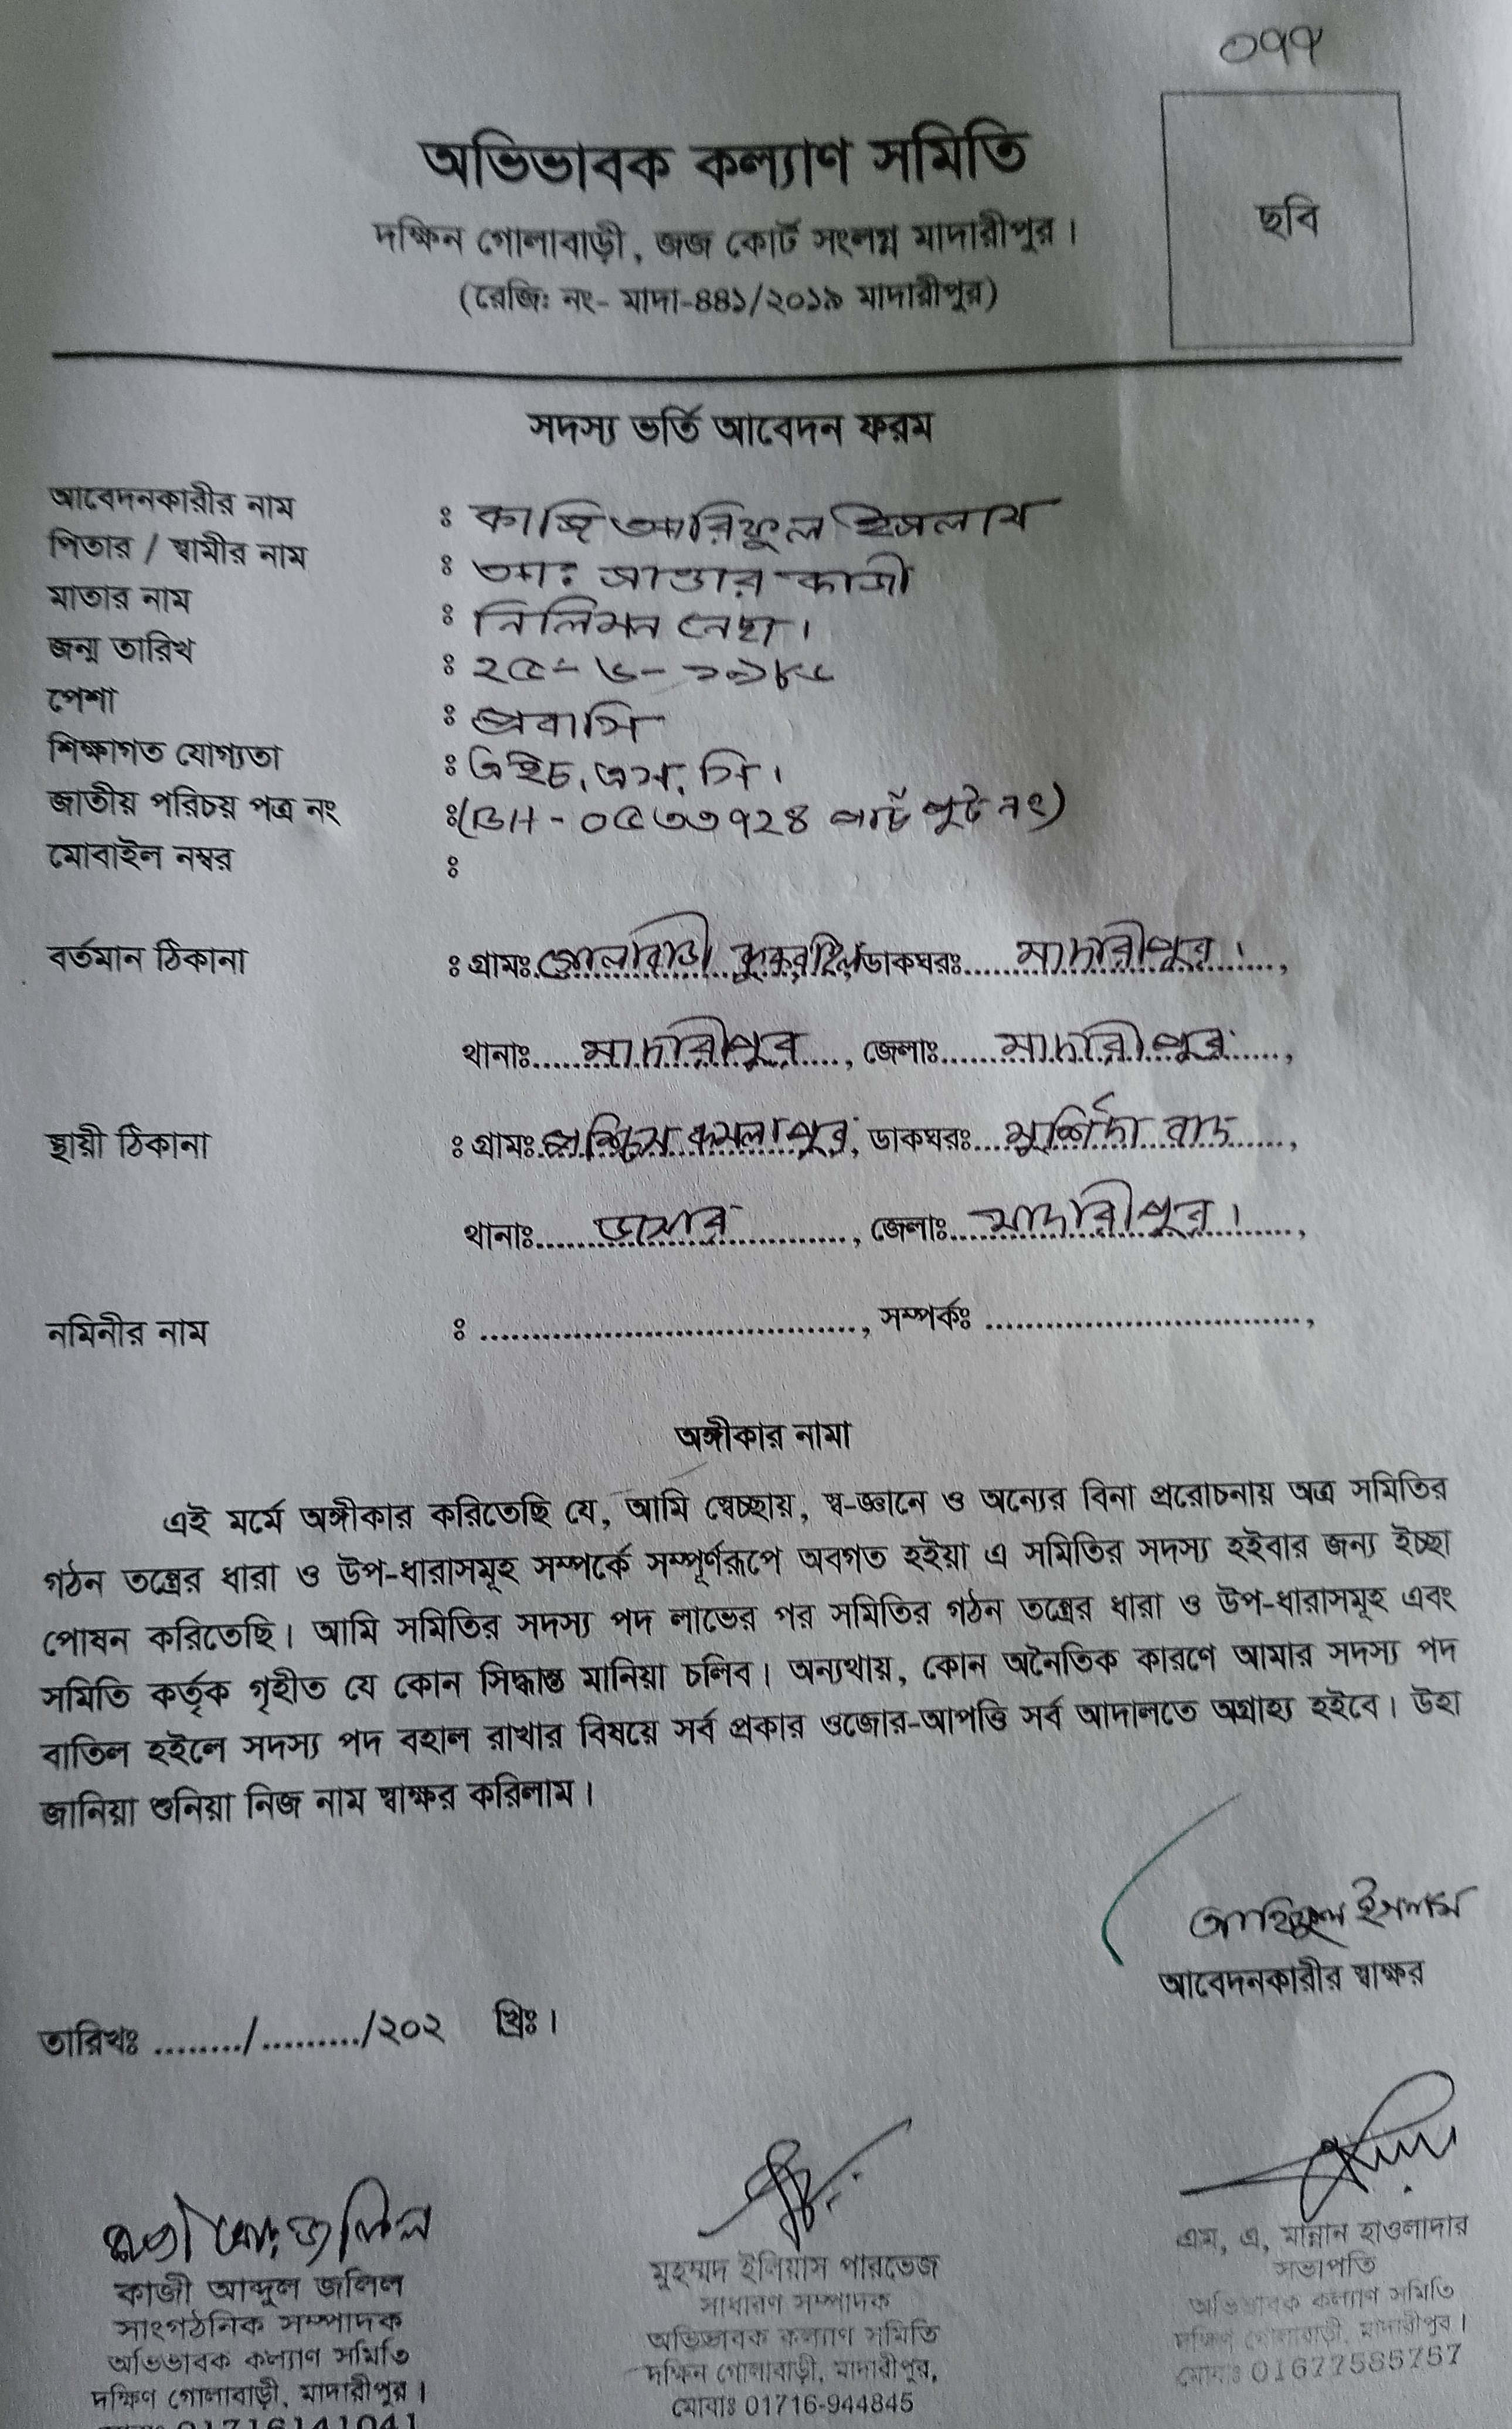 ০৭৭
অভিভাবক কল্যাণ সমিতি
দক্ষিন গোলাবাড়ী, জজ কোর্ট সংলগ্ন মাদারীপুর।
(রেজিঃ নং- মাদা-৪৪১/২০১৯ মাদারীপুর)
ছবি
সদস্য ভর্তি আবেদন ফরম
আবেদনকারীর নাম : কাজি আরিফুল ইসলাম
পিতার / স্বামীর নাম : আঃ সাত্তার কাজী
মাতার নাম : নিলিমন নেছা।
জন্ম তারিখ : ২৫-৬-১৯৮৫
পেশা : প্রবাসি
শিক্ষাগত যোগ্যতা : এইচ,এস,সি।
জাতীয় পরিচয় পত্র নং :(BH-০৫৩৩৭২৪ পার্ট পুট নং)
মোবাইল নম্বর :
বর্তমান ঠিকানা : গ্রামঃ গোলাবাড়ী ডাকঘরঃ মাদারীপুর।,
থানাঃ মাদারীপুর, জেলাঃ মাদারীপুর,
স্থায়ী ঠিকানা : গ্রামঃ পশ্চিম কমলাপুর, ডাকঘরঃ মুর্শিদা বাদ,
থানাঃ ডাসার, জেলাঃ মাদারীপুর।,
নমিনীর নাম : ...................................., সম্পর্কঃ ..............................,
অঙ্গীকার নামা
এই মর্মে অঙ্গীকার করিতেছি যে, আমি স্বেচ্ছায়, স্ব-জ্ঞানে ও অন্যের বিনা প্ররোচনায় অত্র সমিতির
গঠন তন্ত্রের ধারা ও উপ-ধারাসমূহ সম্পর্কে সম্পূর্ণরূপে অবগত হইয়া এ সমিতির সদস্য হইবার জন্য ইচ্ছা
পোষন করিতেছি। আমি সমিতির সদস্য পদ লাভের পর সমিতির গঠন তন্ত্রের ধারা ও উপ-ধারাসমূহ এবং
সমিতি কর্তৃক গৃহীত যে কোন সিদ্ধান্ত মানিয়া চলিব। অন্যথায়, কোন অনৈতিক কারণে আমার সদস্য পদ
বাতিল হইলে সদস্য পদ বহাল রাখার বিষয়ে সর্ব প্রকার ওজোর-আপত্তি সর্ব আদালতে অগ্রাহ্য হইবে। উহা
জানিয়া শুনিয়া নিজ নাম স্বাক্ষর করিলাম।
আরিফুল ইসলাম
আবেদনকারীর স্বাক্ষর
তারিখঃ ........./........./২০২ খ্রিঃ।
কাজী আঃ জলিল
কাজী আব্দুল জলিল
সাংগঠনিক সম্পাদক
অভিভাবক কল্যাণ সমিতি
দক্ষিণ গোলাবাড়ী, মাদারীপুর।
মোবাঃ 01716141041
মুহম্মদ ইলিয়াস পারভেজ
সাধারণ সম্পাদক
অভিভাবক কল্যাণ সমিতি
দক্ষিন গোলাবাড়ী, মাদারীপুর,
মোবাঃ 01716-944845
এম, এ, মান্নান হাওলাদার
সভাপতি
অভিভাবক কল্যাণ সমিতি
দক্ষিণ গোলাবাড়ী, মাদারীপুর।
মোবাঃ 01677585757